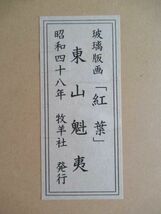 玻璃版画「紅葉」
東山魁夷
昭和四十八年 牧羊社 発行